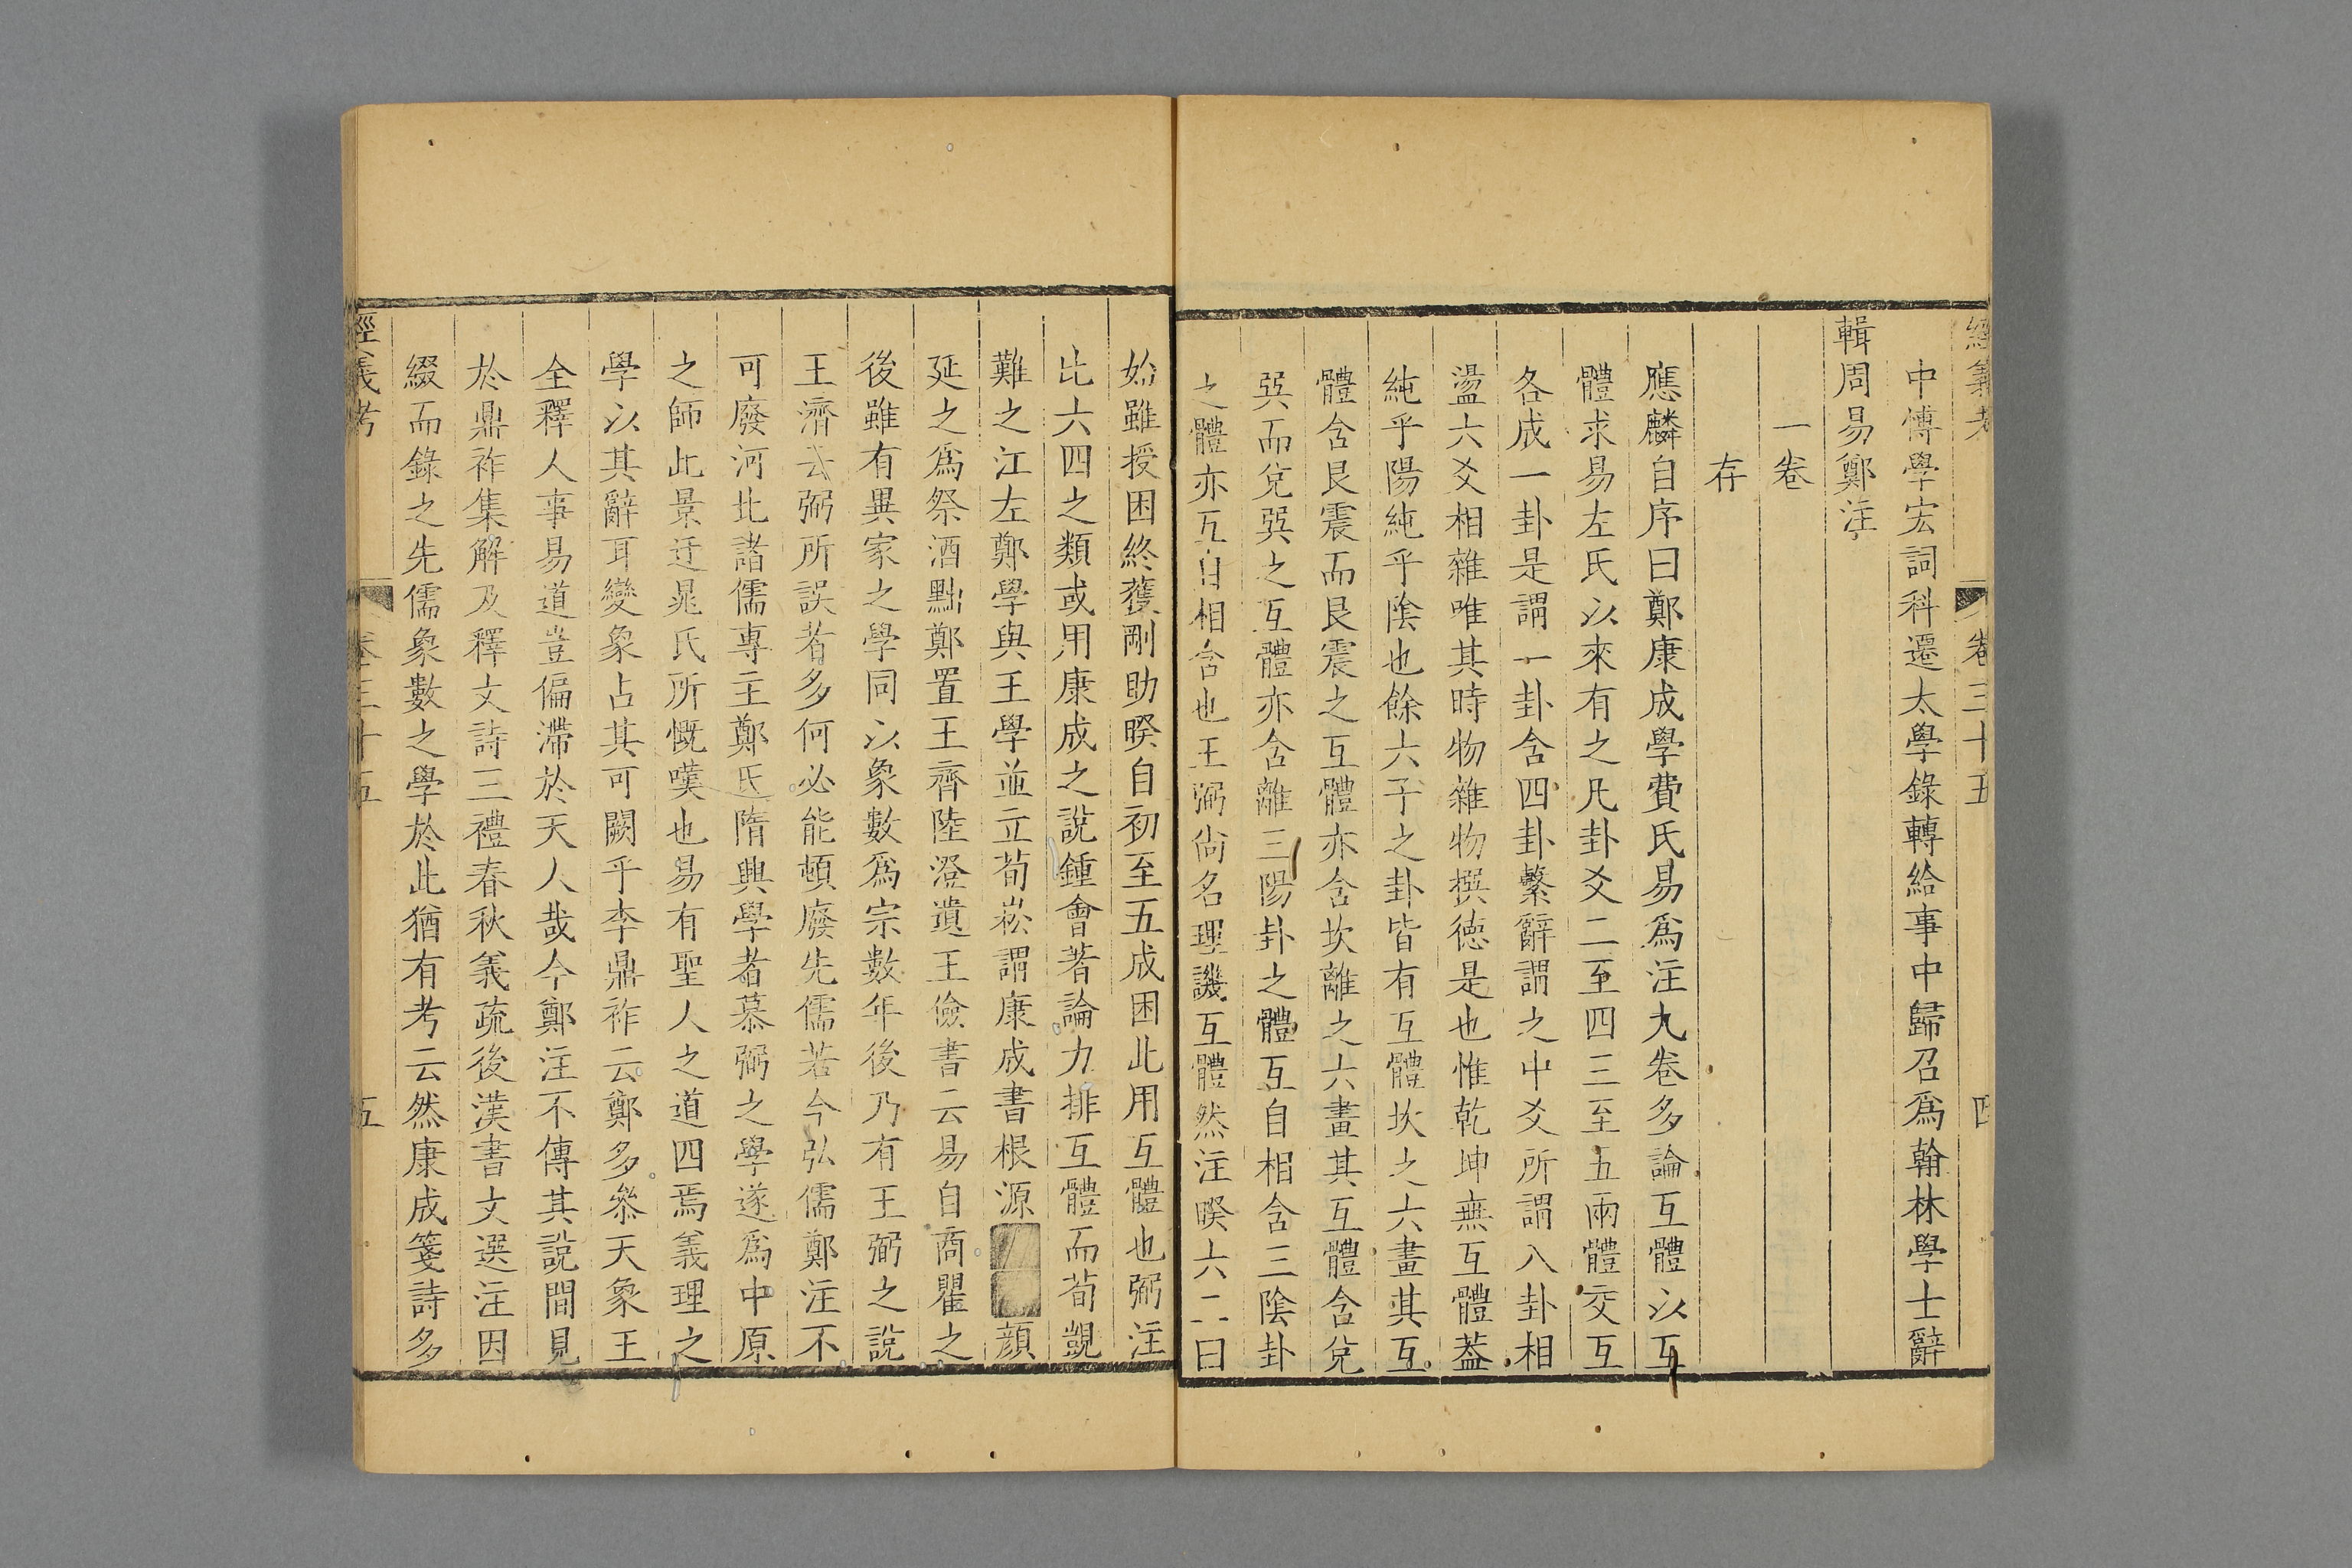 經義考 卷三十五 四
中博學宏詞科遷太學錄轉給事中歸召爲翰林學士辭
輯周易鄭注
一卷
存
應麟自序曰鄭康成學費氏易爲注九卷多論互體以互
體求易左氏以來有之凡卦爻二至四三至五兩體交互
各成一卦是謂一卦含四卦繫辭謂之中爻所謂八卦相
盪六爻相雜唯其時物雜物撰德是也惟乾坤無互體葢
純乎陽純乎陰也餘六子之卦皆有互體坎之六畫其互
體含艮震而艮震之互體亦含坎離之六畫其互體含兌
巽而兌巽之互體亦含離三陽卦之體互自相含三陰卦
之體亦互自相含也王弼尚名理譏互體然注睽六二曰
始雖授困終獲剛助睽自初至五成困此用互體也弼注
比六四之類或用康成之說鍾會著論力排互體而荀覬
難之江左鄭學與王學並立荀崧謂康成書根源顏
延之爲祭酒黜鄭置王齊陸澄遺王儉書云易自商瞿之
後雖有異家之學同以象數爲宗數年後乃有王弼之說
王濟云弼所誤者多何必能頓廢先儒若今弘儒鄭注不
可廢河北諸儒專主鄭氏隋興學者慕弼之學遂爲中原
之師此景迂晁氏所慨嘆也易有聖人之道四焉義理之
學以其辭耳變象占其可闕乎李鼎祚云鄭多叅天象王
全釋人事易道豈偏滯於天人哉今鄭注不傳其說間見
於鼎祚集解及釋文詩三禮春秋義疏後漢書文選注因
綴而錄之先儒象數之學於此猶有考云然康成箋詩多
經義考 卷三十五 五